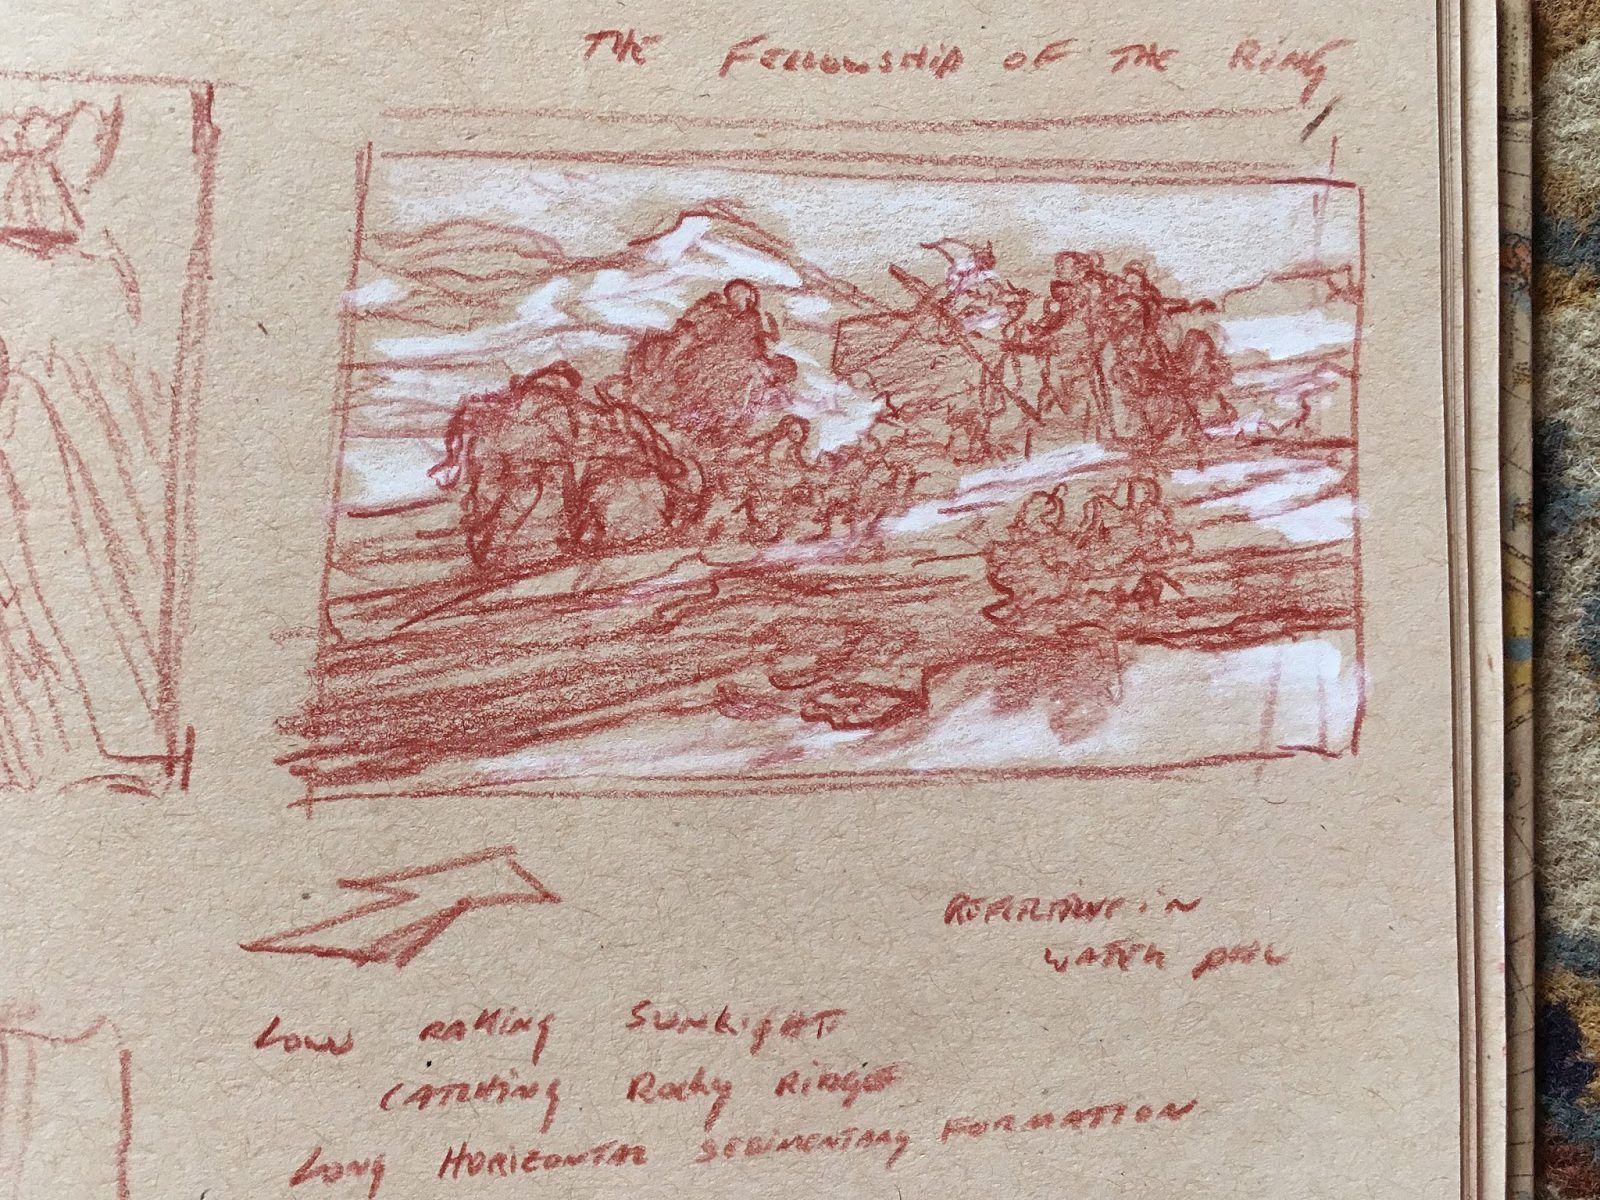 THE FELLOWSHIP OF THE RING
REFLECTIONS IN
WATER POOL
LOW RAKING SUNLIGHT
CATCHING ROCKY RIDGE
LONG HORIZONTAL SEDIMENTARY FORMATION